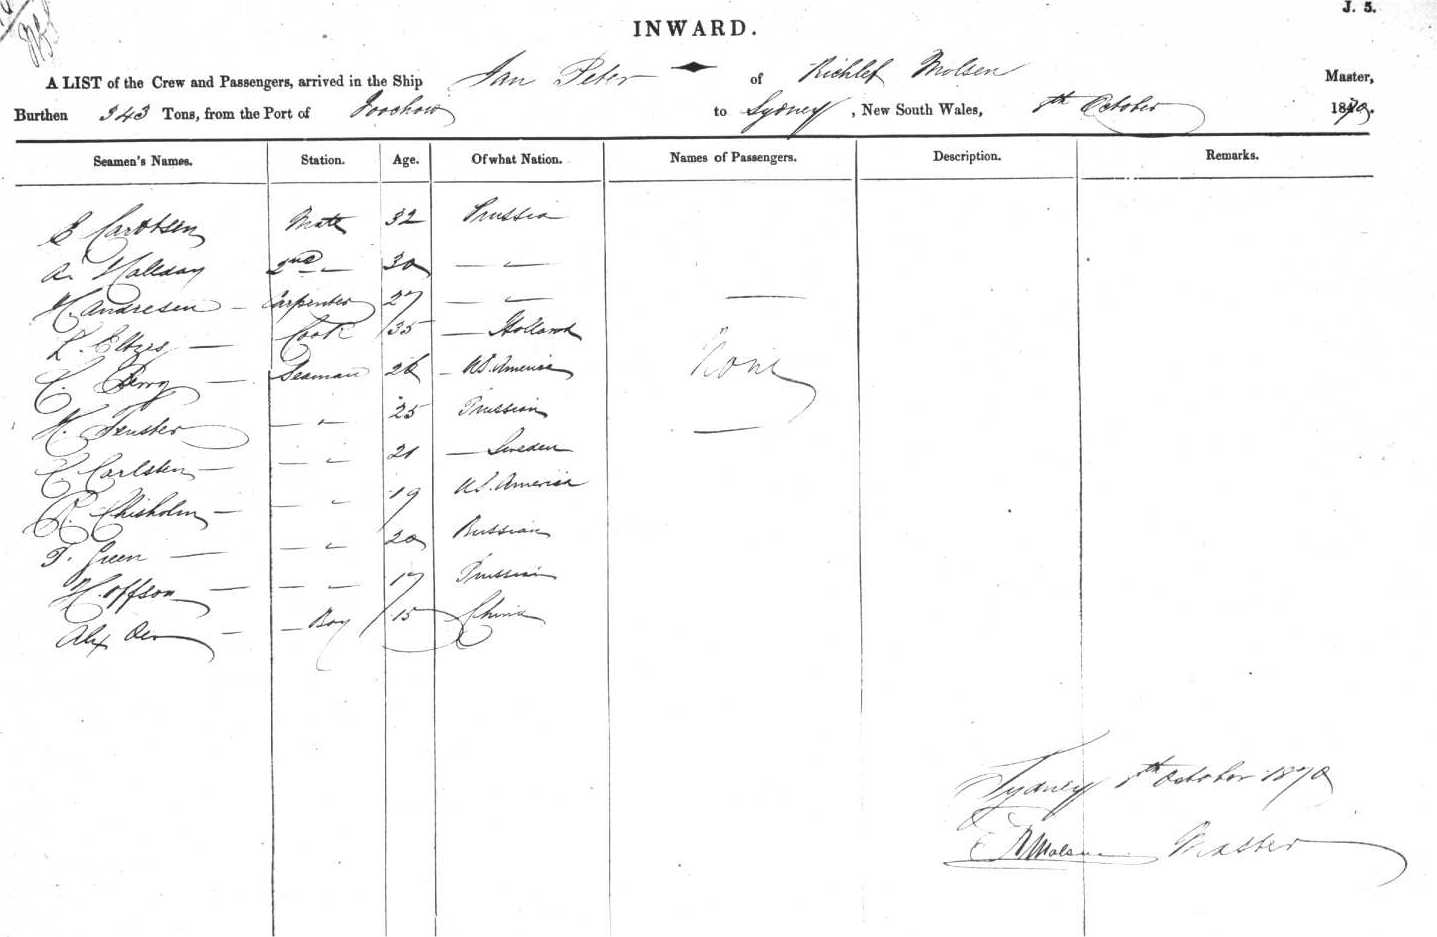 J. 5.
INWARD.
A LIST of the Crew and Passengers, arrived in the Ship Jan Peter of Richlef Molsen Master,
Burthen 343 Tons, from the Port of Foochow to Sydney, New South Wales, October 1870.
Seamen's Names. Station. Age. Of what Nation. Names of Passengers. Description. Remarks.
E Mate 32 Prussia
A. Halleday 2nd 30 — "
H. Andresen — Carpenter 27 — "
L. — Cook 35 — Holland
C. Berry — Seaman 26 — U.S. America
H. — " 25 Prussian
C Carlsten — — " 21 — Sweden
R. Chisholm — — " 19 U.S. America
T. Green — — " 20 Russian
H. offson — — " 17 Prussian
Alex — — Boy 15 China
None
Sydney October 1870
R Molsen Master